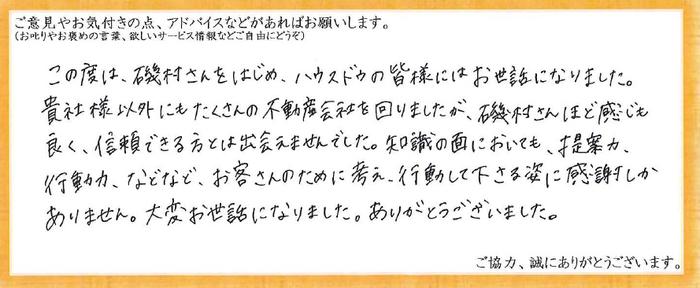 ご意見やお気付きの点、アドバイスなどがあればお願いします。
(お叱りやお褒めの言葉、欲しいサービス情報などご自由にどうぞ)
この度は、磯村さんをはじめ、ハウスドゥの皆様にはお世話になりました。
貴社様以外にもたくさんの不動産会社を回りましたが、磯村さんほど感じも
良く、信頼できる方とは出会えませんでした。知識の面においても、提案力、
行動力、などなど、お客さんのために考え、行動して下さる姿に感謝しか
ありません。大変お世話になりました。ありがとうございました。
ご協力、誠にありがとうございます。